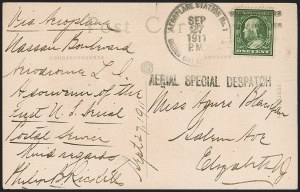 Via Aeroplane
Nassau Boulevard
Aerodrome L.I.
A souvenir of the
first U.S. Aerial
Postal Service
Kind regards
Philip
Sept 27, 1911
AEROPLANE STATION No. 1
SEP
27
1911
PM
ONE CENT
AERIAL SPECIAL DESPATCH
Miss Agnes
Salem Ave
Elizabeth NJ